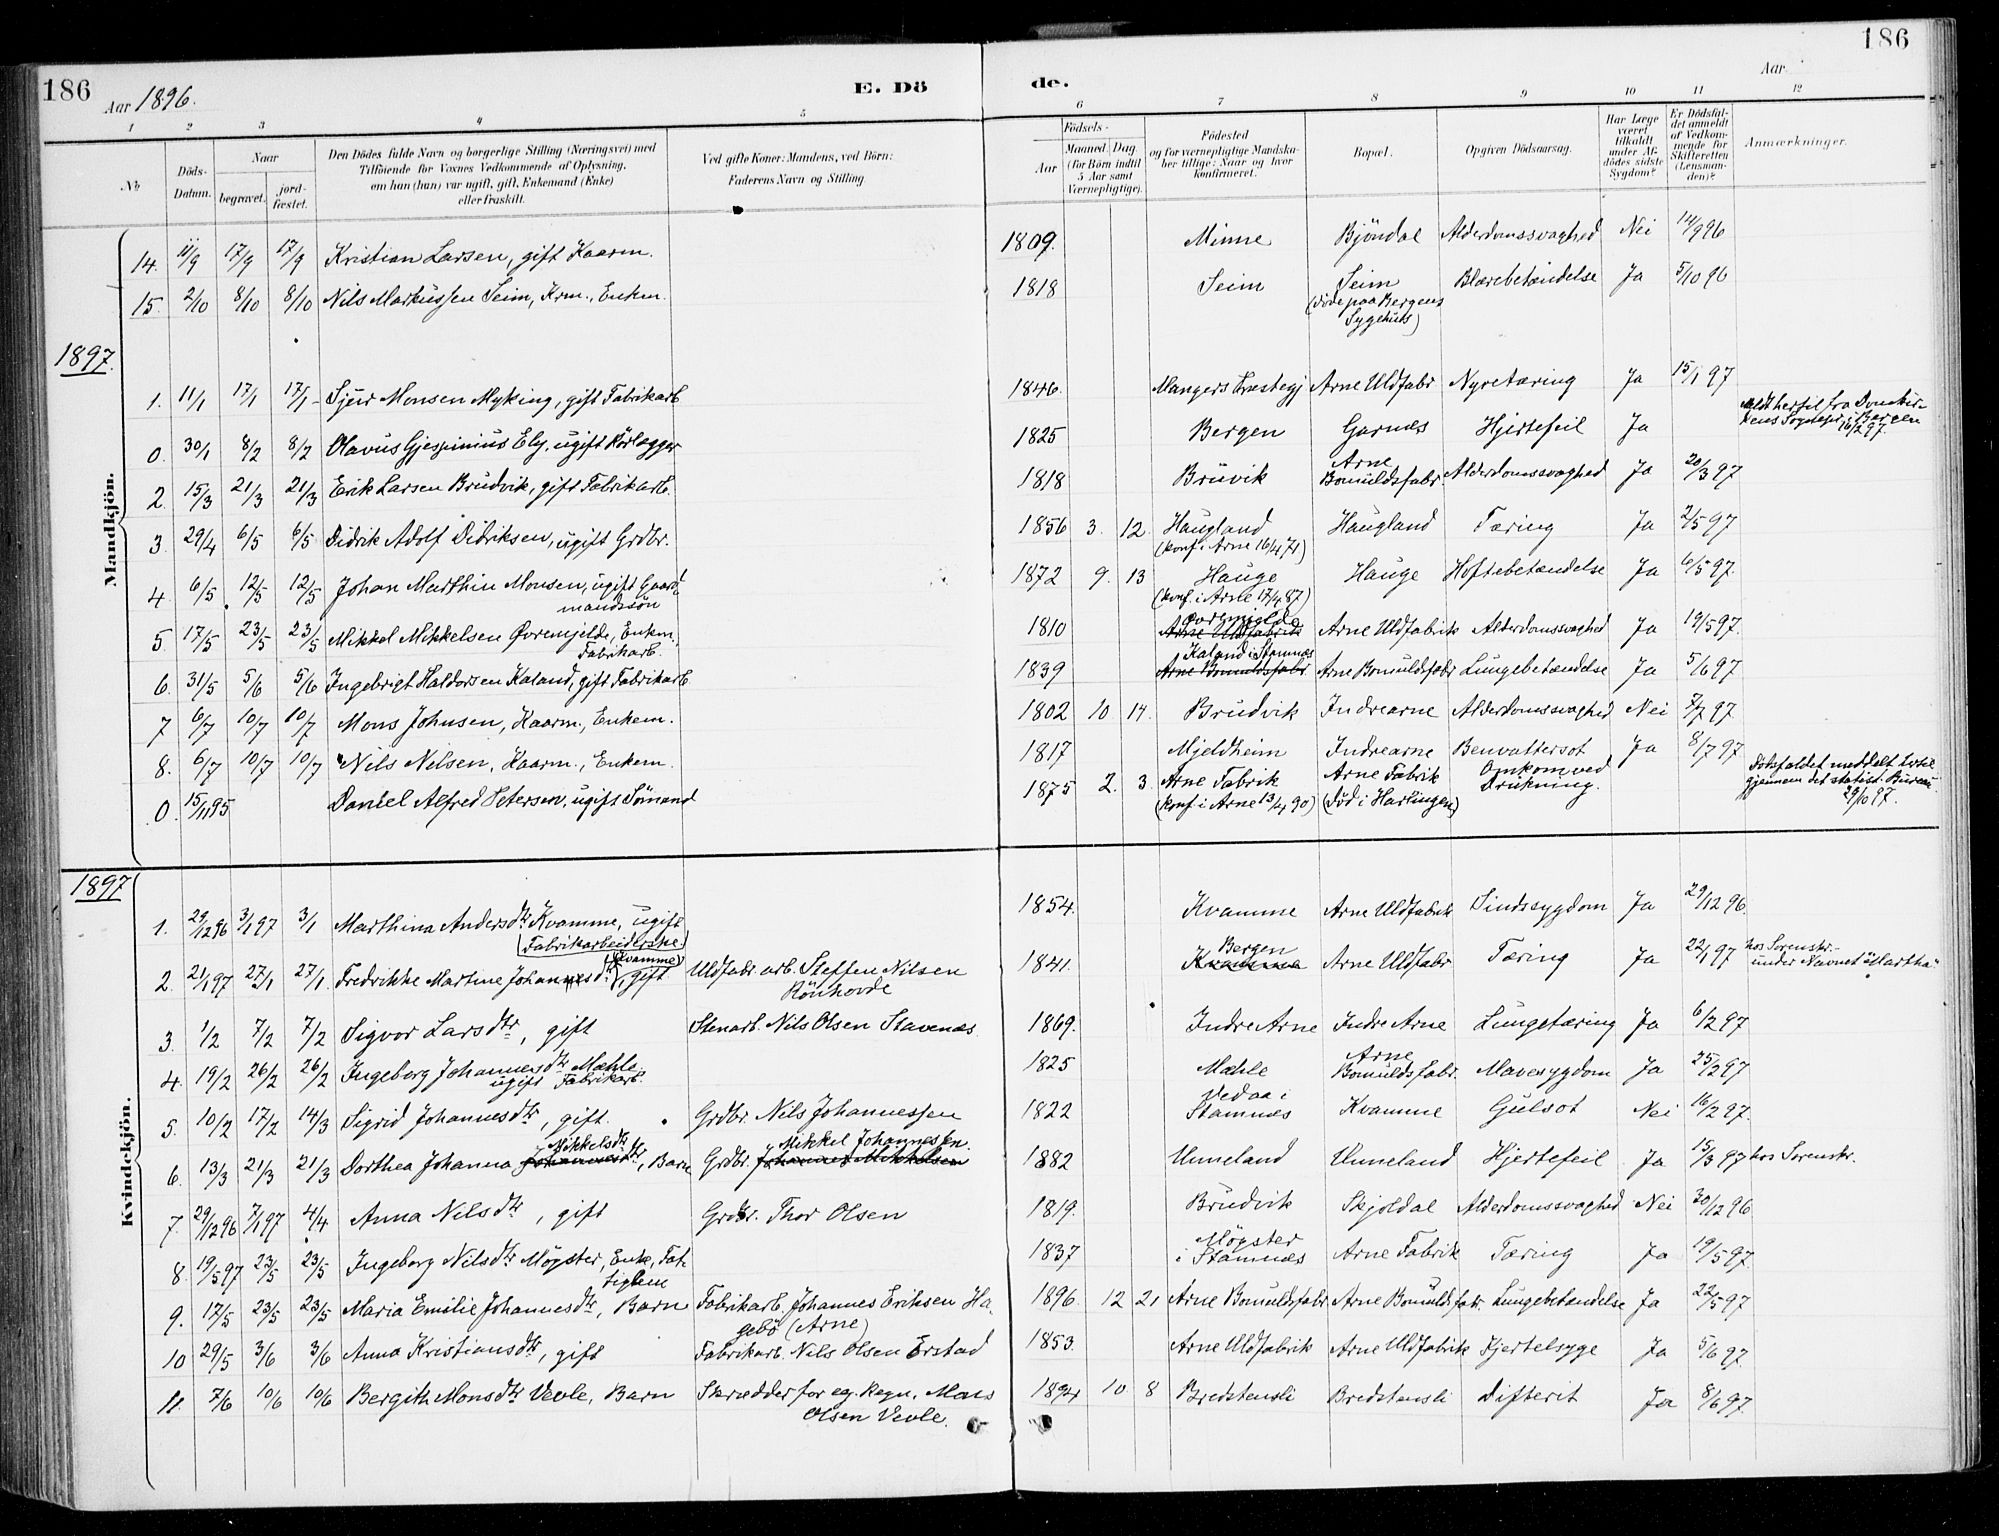 186
Aar 1896.
E. Dö
de.
Aar
186
1 2 3 4 5 6 7 8 9 10 11 12
No
Döds-Datum.
Naar
begravet.
jord-fæstet.
Den Dödes fulde Navn og borgerlige Stilling (Næringsvei) med
Tilföiende for Voxnes Vedkommende af Oplysning,
om han (hun) var ugift, gift, Enkemand (Enke)
eller fraskilt.
Ved gifte Koner: Mandens, ved Börn:
Faderens Navn og Stilling.
Födsels-
Aar
Maaned. Dag.
(for Börn indtil
5 Aar samt
Værnepligtige).
Födested
og for værnepligtige Mandska-
ber tillige: Naar og hvor
konfirmeret.
Bopæl.
Opgiven Dödsaarsag.
Har Læge
været
tilkaldt
under Af-
dödes sidste
Sygdom?
Er Dödsfal-
det anmeldt
af Vedkom-
mende for
Skifteretten
(Lensman-
den)?
Anmærkninger.
Mandkjön.
14. 11/9 17/9 17/9 Kristian Larsen, gift Kaarm. 1809. Minne Bjöndal Alderdomssvaghed Nei 14/9 96
15. 2/10 8/10 8/10 Nils Markussen Seim, Krm., Enkm. 1818 Seim Seim (döde paa Bergens Sygehus) Blærebetændelse Ja 5/10 96
1897.
1. 11/1 17/1 17/1 Sjur Monsen Myking, gift Fabrikarb 1846. Mangers Præstegj Arne Uldfabr Nyretæring Ja 15/1 97
0. 30/1 8/2 8/2 Olavus Gjespinius Ely, ugift Rörlægger 1825 Bergen Garnæs Hjertefeil Ja meldt hertil fra Domkir-kens Sognepr. i Bergen 16/2 97.
2. 15/3 21/3 21/3 Erik Larsen Brudvik, gift Fabrikarb. 1818 Bruvik Arne Bomuldsfabr. Alderdomssvaghed Ja 20/3 97
3. 29/4 6/5 6/5 Didrik Adolf Didriksen, ugift Grdbr. 1856 3. 12. Haugland (konf. i Arne 16/4 71) Haugland Tæring Ja 2/5 97
4. 6/5 12/5 12/5 Johan Marthin Monsen, ugift Gaard-mandssön 1872 9. 13 Hauge (konf. i Arne 17/4 87) Hauge Hoftebetændelse Ja 6/5 97.
5. 17/5 23/5 23/5 Mikkel Mikkelsen Övremjelde, Enkm. Fabrikarb. 1810 Övremjelde Arne Uldfabrik Arne Uldfabrik Alderdomssvaghed Ja 19/5 97.
6. 31/5 5/6 5/6 Ingebrigt Haldorsen Kaland, gift Fabrikarb. 1839 Kaland i Stamnæs Arne Bomuldsfabr Arne Bomuldsfabr Lungebetændelse Ja 5/6 97
7 6/7 10/7 10/7 Mons Johnsen, Kaarm., Enkem. 1802 10 14. Brudvik Indrearne Alderdomssvaghed Nei 7/7 97
8. 6/7 10/7 10/7 Nils Nilsen, Kaarm., Enkem. 1817 Mjeldheim Indrearne Benvattersot Ja 8/7 97
0. 15/11 95 Daniel Alfred Petersen, ugift Sömand 1875 2. 3. Arne Fabrik (konf. i Arne 13/4 90) Arne Fabrik (död i Harlingen) Omkom ved Drukning. Dödsfaldet meddelt hertil gjennem det statist. Bureau 29/10 97.
1897
Kvindekjön.
1. 29/12 96 3/1 97 3/1 Marthina Andersdtr Kvamme, ugift Fabrikarbeiderske 1854. Kvamme Arne Uldfabrik Sindssygdom Ja 29/12 96.
2. 21/1 97 27/1 27/1 Fredrikke Martine Johannesdtr (Kvamme), gift Uldfabr. arb. Steffen Nilsen Rönhovde 1841. Bergen Kvamme Arne Uldfabr Tæring Ja 22/1 97 hos Sorenskr. under Navnet "Martha"
3. 1/2 7/2 7/2 Sigvor Larsdtr, gift Stenarb. Nils Olsen Stavenæs 1869. Indre Arne Indre Arne Lungetæring Ja 6/2 97
4. 19/2 26/2 26/2 Ingeborg Johannesdtr Mæhle ugift Fabrikarb. 1825 Mæhle Arne Bomuldsfabr. Mavesygdom Ja 25/2 97
5. 10/2 17/2 14/3 Sigrid Johannesdtr, gift. Grdbr. Nils Johannessen 1822 Vedaa i Stamnæs Kvamme Gulsot Nei 16/2 97.
6. 13/3 21/3 21/3 Dorthea Johanna Mikkelsdtr Johannesdtr, Barn Grdbr. Mikkel Johannessen Johannes Mikkelsen 1882 Unneland Unneland Hjertefeil Ja 15/3 97 hos Sorenskr.
7. 29/12 96 7/1 97 4/4 Anna Nilsdtr, gift Grdbr. Thor Olsen 1819. Brudvik Skjoldal Alderdomssvaghed Nei 30/12 96
8. 19/5 97 23/5 23/5 Ingeborg Nilsdtr Möyster, Enke, Fat-tiglem 1837 Möyster i Stamnæs Arne Fabrik Tæring Ja 19/5 97.
9. 17/5 23/5 23/5 Maria Emilie Johannesdtr, Barn Fabrikarb. Johannes Eriksen Ha-gebö (Arne) 1896. 12 21 Arne Bomuldsfabr. Arne Bomuldsfabr. Lungebetændelse Ja 22/5 97
10 29/5 3/6 3/6 Anna Kristiansdtr, gift Fabrikarb. Nils Olsen Erstad 1853. Arne Uldfabrik Arne Uldfabrik Kjertelsyge Ja 5/6 97.
11. 7/6 10/6 10/6 Bergith Monsdtr Vevle, Barn Skrædder for eg. Regn. Mons Olsen Vevle. 1894 10 8 Bredstensli Bredstensli Difterit Ja 8/6 97.